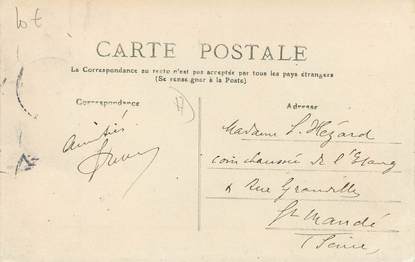 Lot
CARTE POSTALE
La Correspondance au recto n'est pas acceptée par tous les pays étrangers
(Se renseigner à la Poste)
Correspondance
Amitiés
Adresse
Madame L. Hézard
coin chaussée de l'Etang
& Rue Granville
St Mandé
(Seine)